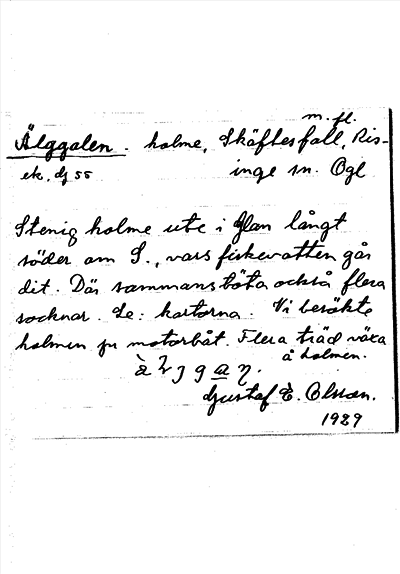 m. fl.
Älggalen. holme, Skäftesfall, Ris-
ek. dj 55 inge sn. Ögl
Stenig holme ute i Glan långt
söder om S., vars fiskevatten går
dit. Där sammanstöta också flera
socknar. Se: kartorna. Vi besökte
holmen pr motorbåt. Flera träd växa
å holmen.
Gustaf E. Olsson.
1929